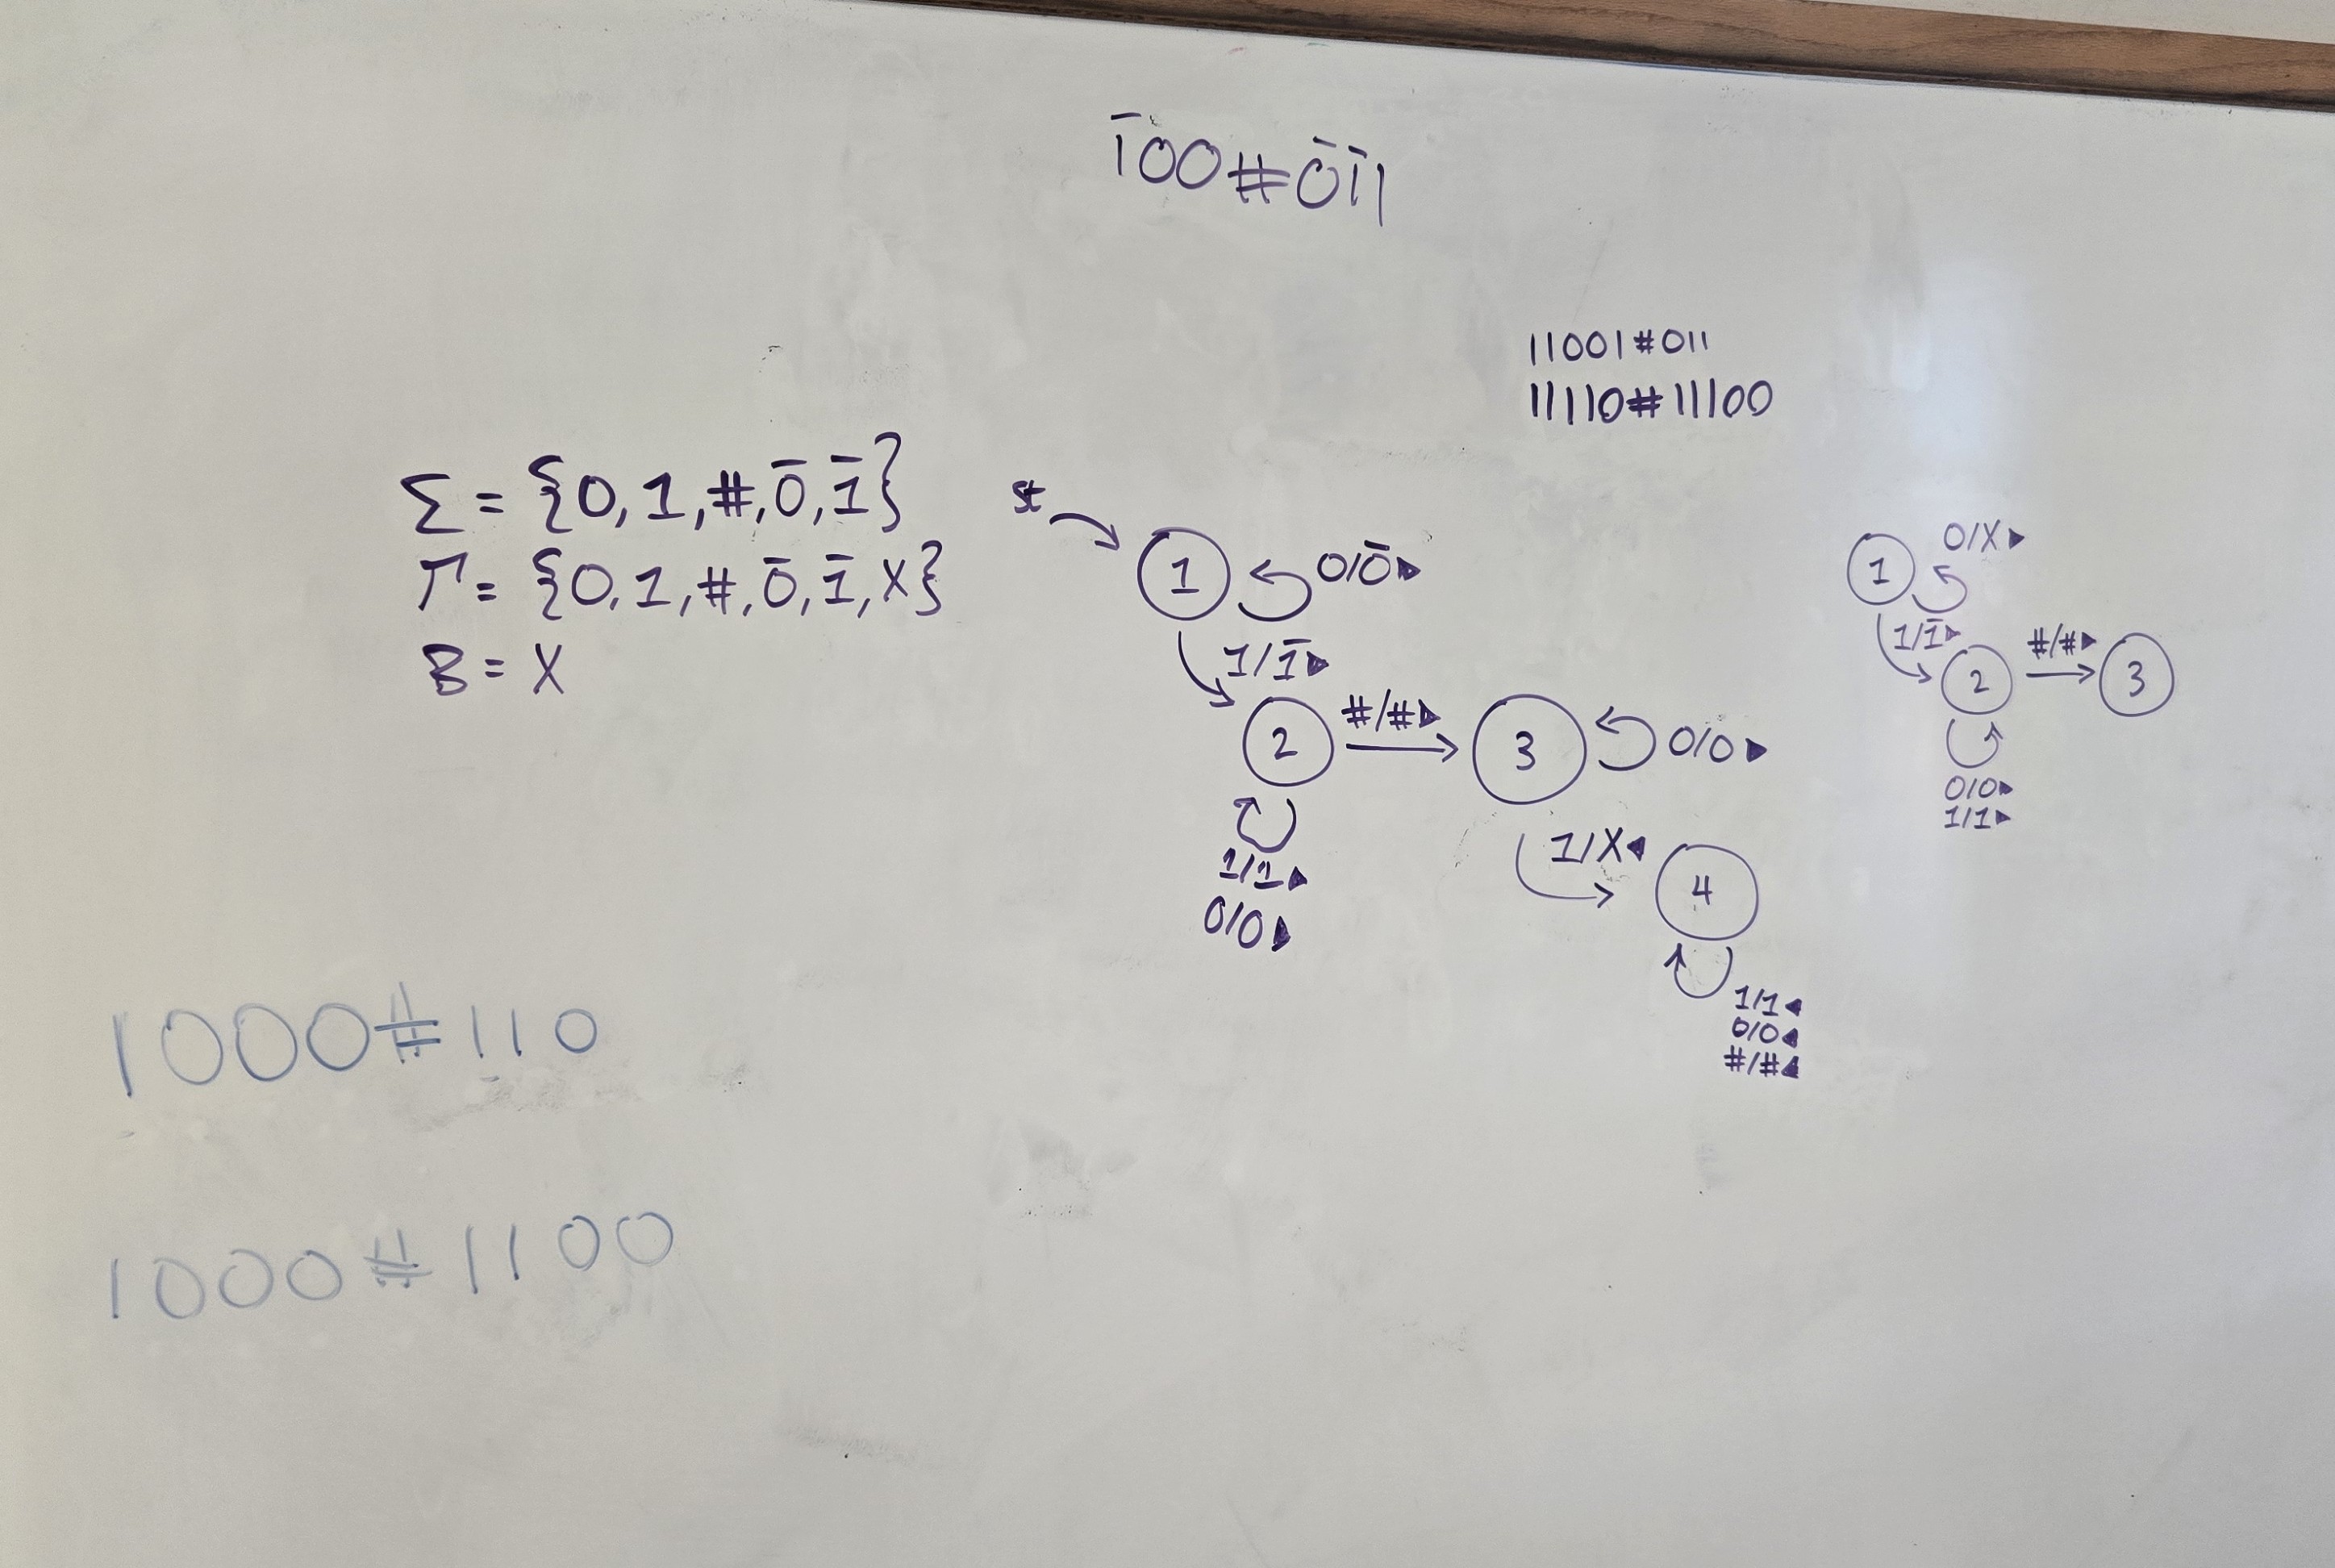 1̅00#0̅1̅1
11001#011
11110#11100
Σ = {0, 1, #, 0̅, 1̅}
Γ = {0, 1, #, 0̅, 1̅, X}
B = X
st
1
0/0̅▶
1/1̅▶
2
#/#▶
3
0/0▶
1/1▶
0/0▶
1/X◀
4
1/1◀
0/0◀
#/#◀
1
0/X▶
1/1̅▶
2
#/#▶
3
0/0▶
1/1▶
1000#110
1000#1100